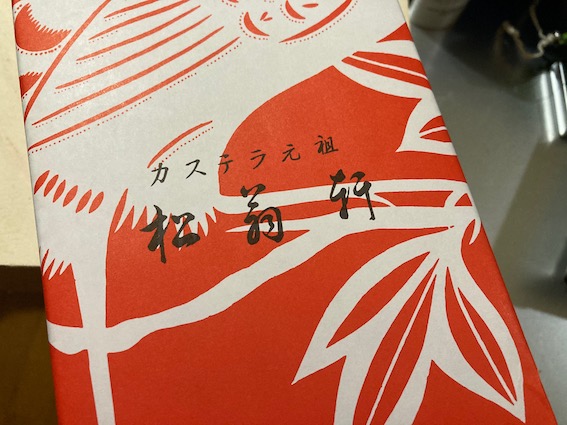 カステラ元祖
松翁軒